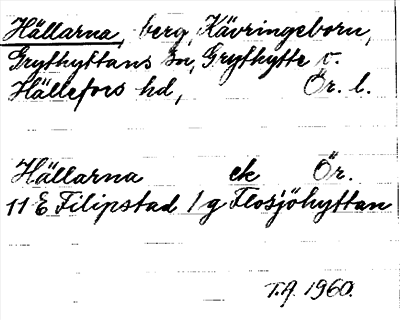 Hällarna, berg, Kävringeborn,
Grythyttans sn, Grythytte v.
Hällefors hd, Ör. l.
Hällarna ek Ör.
11 E Filipstad 1 g Flosjöhyttan
T.A. 1960.